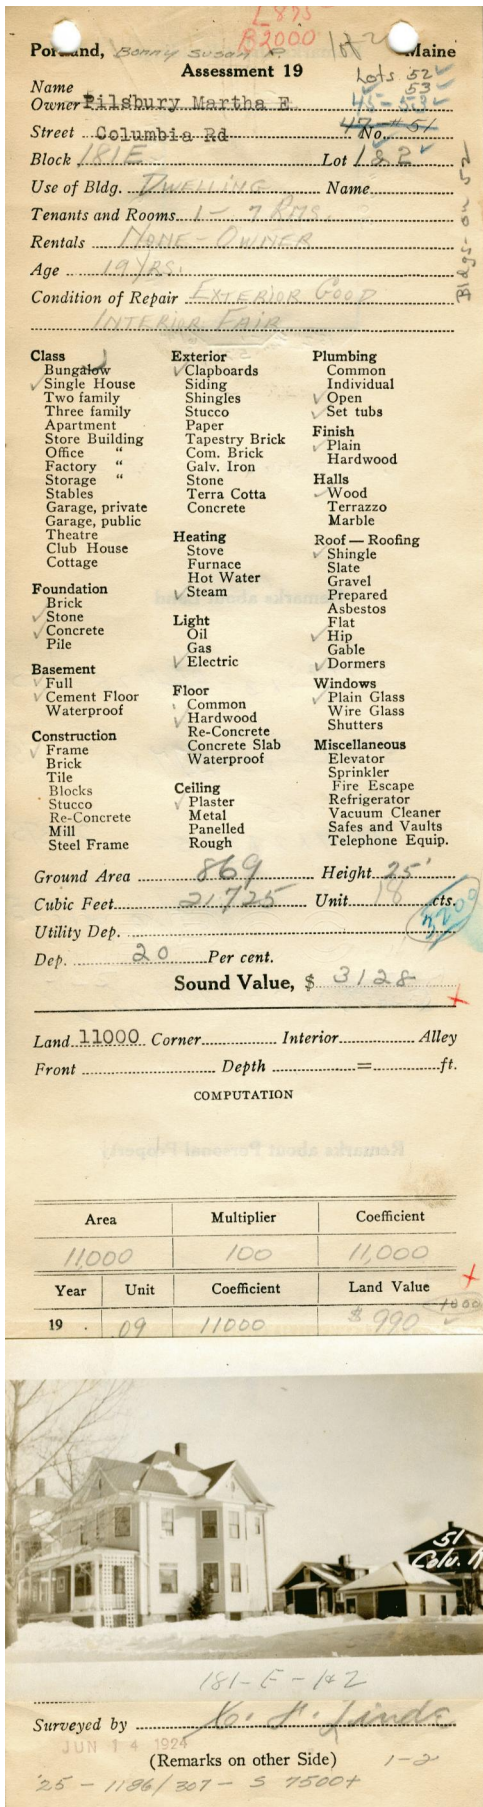 L 875
B2000 lot 2
Portland, Bonny Susan P. Maine
Assessment 19
Lots 52
53
Name
Owner Pilsbury Martha E 45-53
47-#51
Street Columbia Rd No.
Block 181E Lot 1 & 2
Bldgs- on 52
Use of Bldg. DWELLING Name
Tenants and Rooms 1 - 7 RMS.
Rentals NONE - OWNER
Age 19 YRS.
Condition of Repair EXTERIOR GOOD
INTERIOR FAIR
Class
Bungalow
Single House
Two family
Three family
Apartment
Store Building
Office "
Factory "
Storage "
Stables
Garage, private
Garage, public
Theatre
Club House
Cottage
Foundation
Brick
Stone
Concrete
Pile
Basement
Full
Cement Floor
Waterproof
Construction
Frame
Brick
Tile
Blocks
Stucco
Re-Concrete
Mill
Steel Frame
Exterior
Clapboards
Siding
Shingles
Stucco
Paper
Tapestry Brick
Com. Brick
Galv. Iron
Stone
Terra Cotta
Concrete
Heating
Stove
Furnace
Hot Water
Steam
Light
Oil
Gas
Electric
Floor
Common
Hardwood
Re-Concrete
Concrete Slab
Waterproof
Ceiling
Plaster
Metal
Panelled
Rough
Plumbing
Common
Individual
Open
Set tubs
Finish
Plain
Hardwood
Halls
Wood
Terrazzo
Marble
Roof — Roofing
Shingle
Slate
Gravel
Prepared
Asbestos
Flat
Hip
Gable
Dormers
Windows
Plain Glass
Wire Glass
Shutters
Miscellaneous
Elevator
Sprinkler
Fire Escape
Refrigerator
Vacuum Cleaner
Safes and Vaults
Telephone Equip.
Ground Area 869 Height 25'
Cubic Feet 21,725 Unit 18 cts.
3200
Utility Dep.
Dep. 20 Per cent.
Sound Value, $ 3128
Land 11000 Corner Interior Alley
Front Depth = ft.
COMPUTATION
Remarks about Personal Property
Area Multiplier Coefficient
11,000 100 11,000
Year Unit Coefficient Land Value
1000
19 . 09 11000 $ 990
51
Colu. R
181-E-1&2
Surveyed by
JUN 14 1924
(Remarks on other Side) 1-2
'25 - 1186/307 - S 7500+